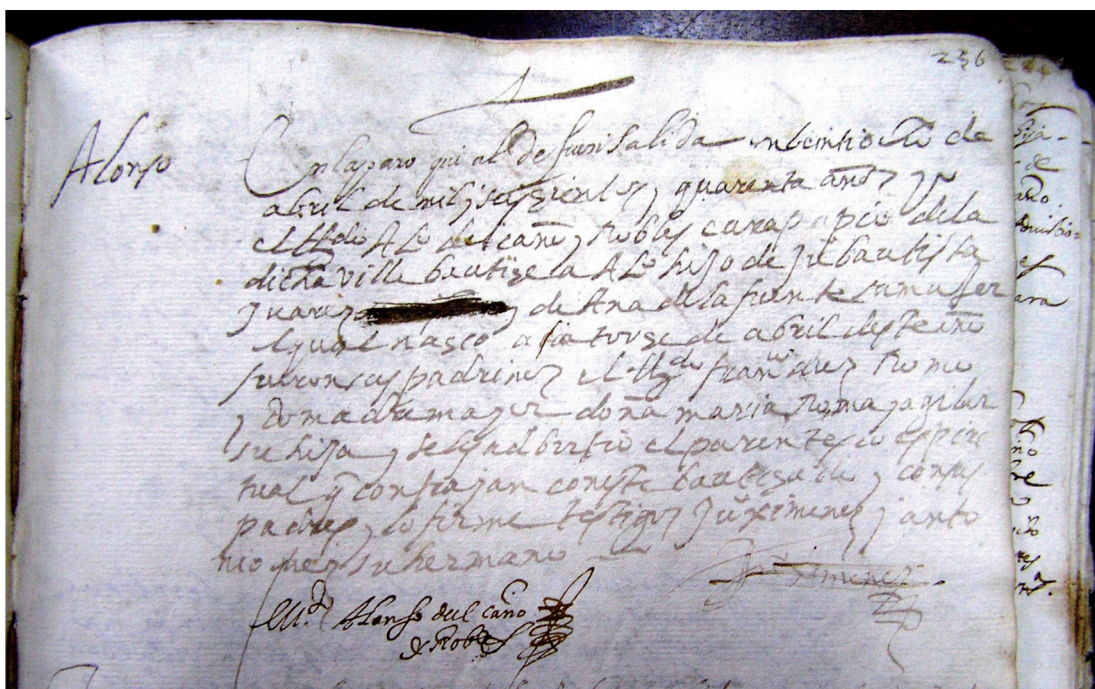 256
Alonso
En la paroquial de fuensalida en beintiocho de
abril de mil y seisçientos y quarenta años yo
el Ldo Alo del caño y Robles cura propio de la
dicha villa bautiçe a Alo hijo de Ju bautista
Juarez y de Ana de la fuente su mujer
el qual nasco a catorse de abril deste año
fueron sus padrinos el Ldo franco diez Romo
y doña maria Roma y agilar
su hija y se les adbirtio el parentesco espiri
tual q contrajan con este bautiçado y con sus
padres y lo firme testigos Ju ximenez y anto
nio su hermano
Ju ximenez
Alonso del caño
y Robles